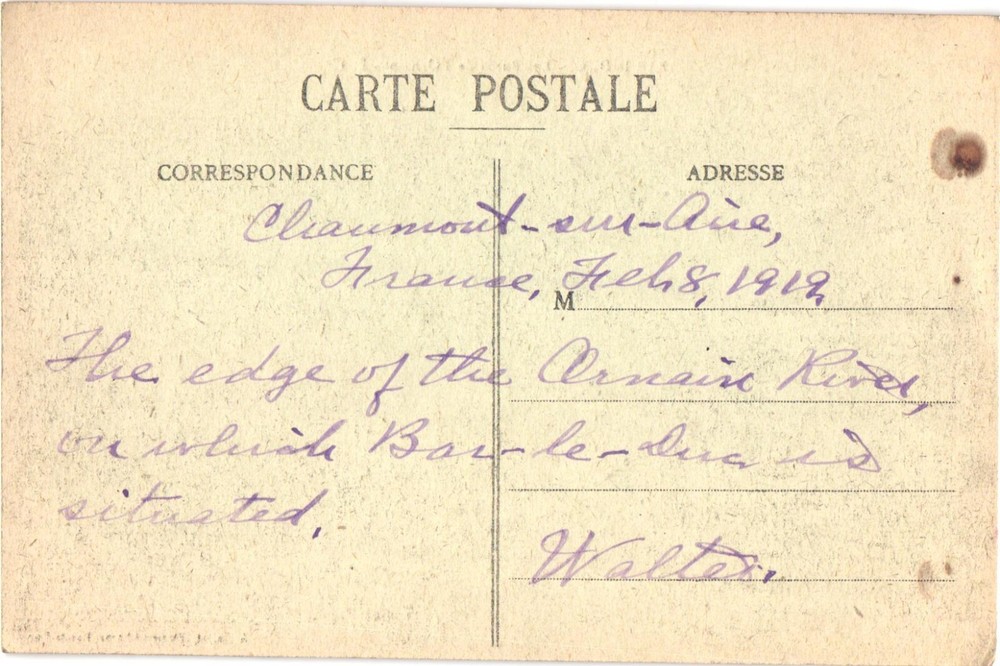 CARTE POSTALE
CORRESPONDANCE
ADRESSE
Chaumont-sur-Aire,
France, Feb 8, 1919.
M
The edge of the Ornain River,
on which Bar-le-Duc is
situated.
Walter.